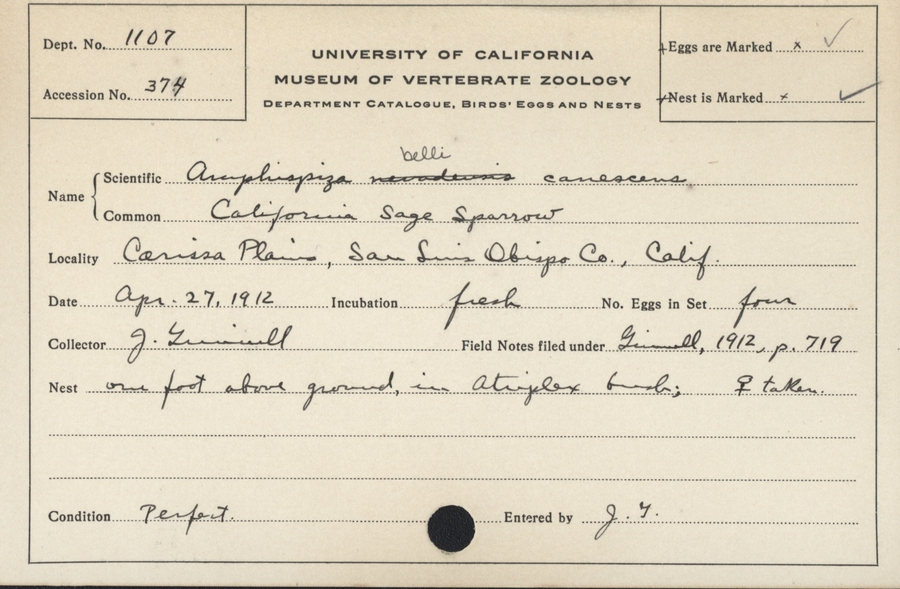 Dept. No. 1107
Accession No. 374
UNIVERSITY OF CALIFORNIA
MUSEUM OF VERTEBRATE ZOOLOGY
DEPARTMENT CATALOGUE, BIRDS' EGGS AND NESTS
Eggs are Marked x ✓
Nest is Marked x ✓
belli
Name { Scientific Amphispiza nevadensis canescens
Common California Sage Sparrow
Locality Carissa Plains, San Luis Obispo Co., Calif.
Date Apr. 27, 1912 Incubation fresh No. Eggs in Set four
Collector J. Grinnell Field Notes filed under Grinnell, 1912, p. 719
Nest one foot above ground, in Atriplex bush; ♀ taken.
Condition Perfect. Entered by J. G.